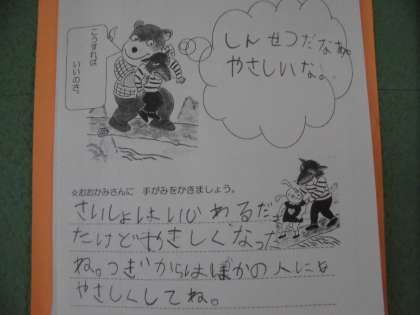 こうすれば
いいのさ。
しんせつだなあ
やさしいなあ
☆おおかみさんに 手がみをかきましょう。
さいしょはいじわるだっ
たけどやさしくなった
ね。つぎからはほかの人にも
やさしくしてね。